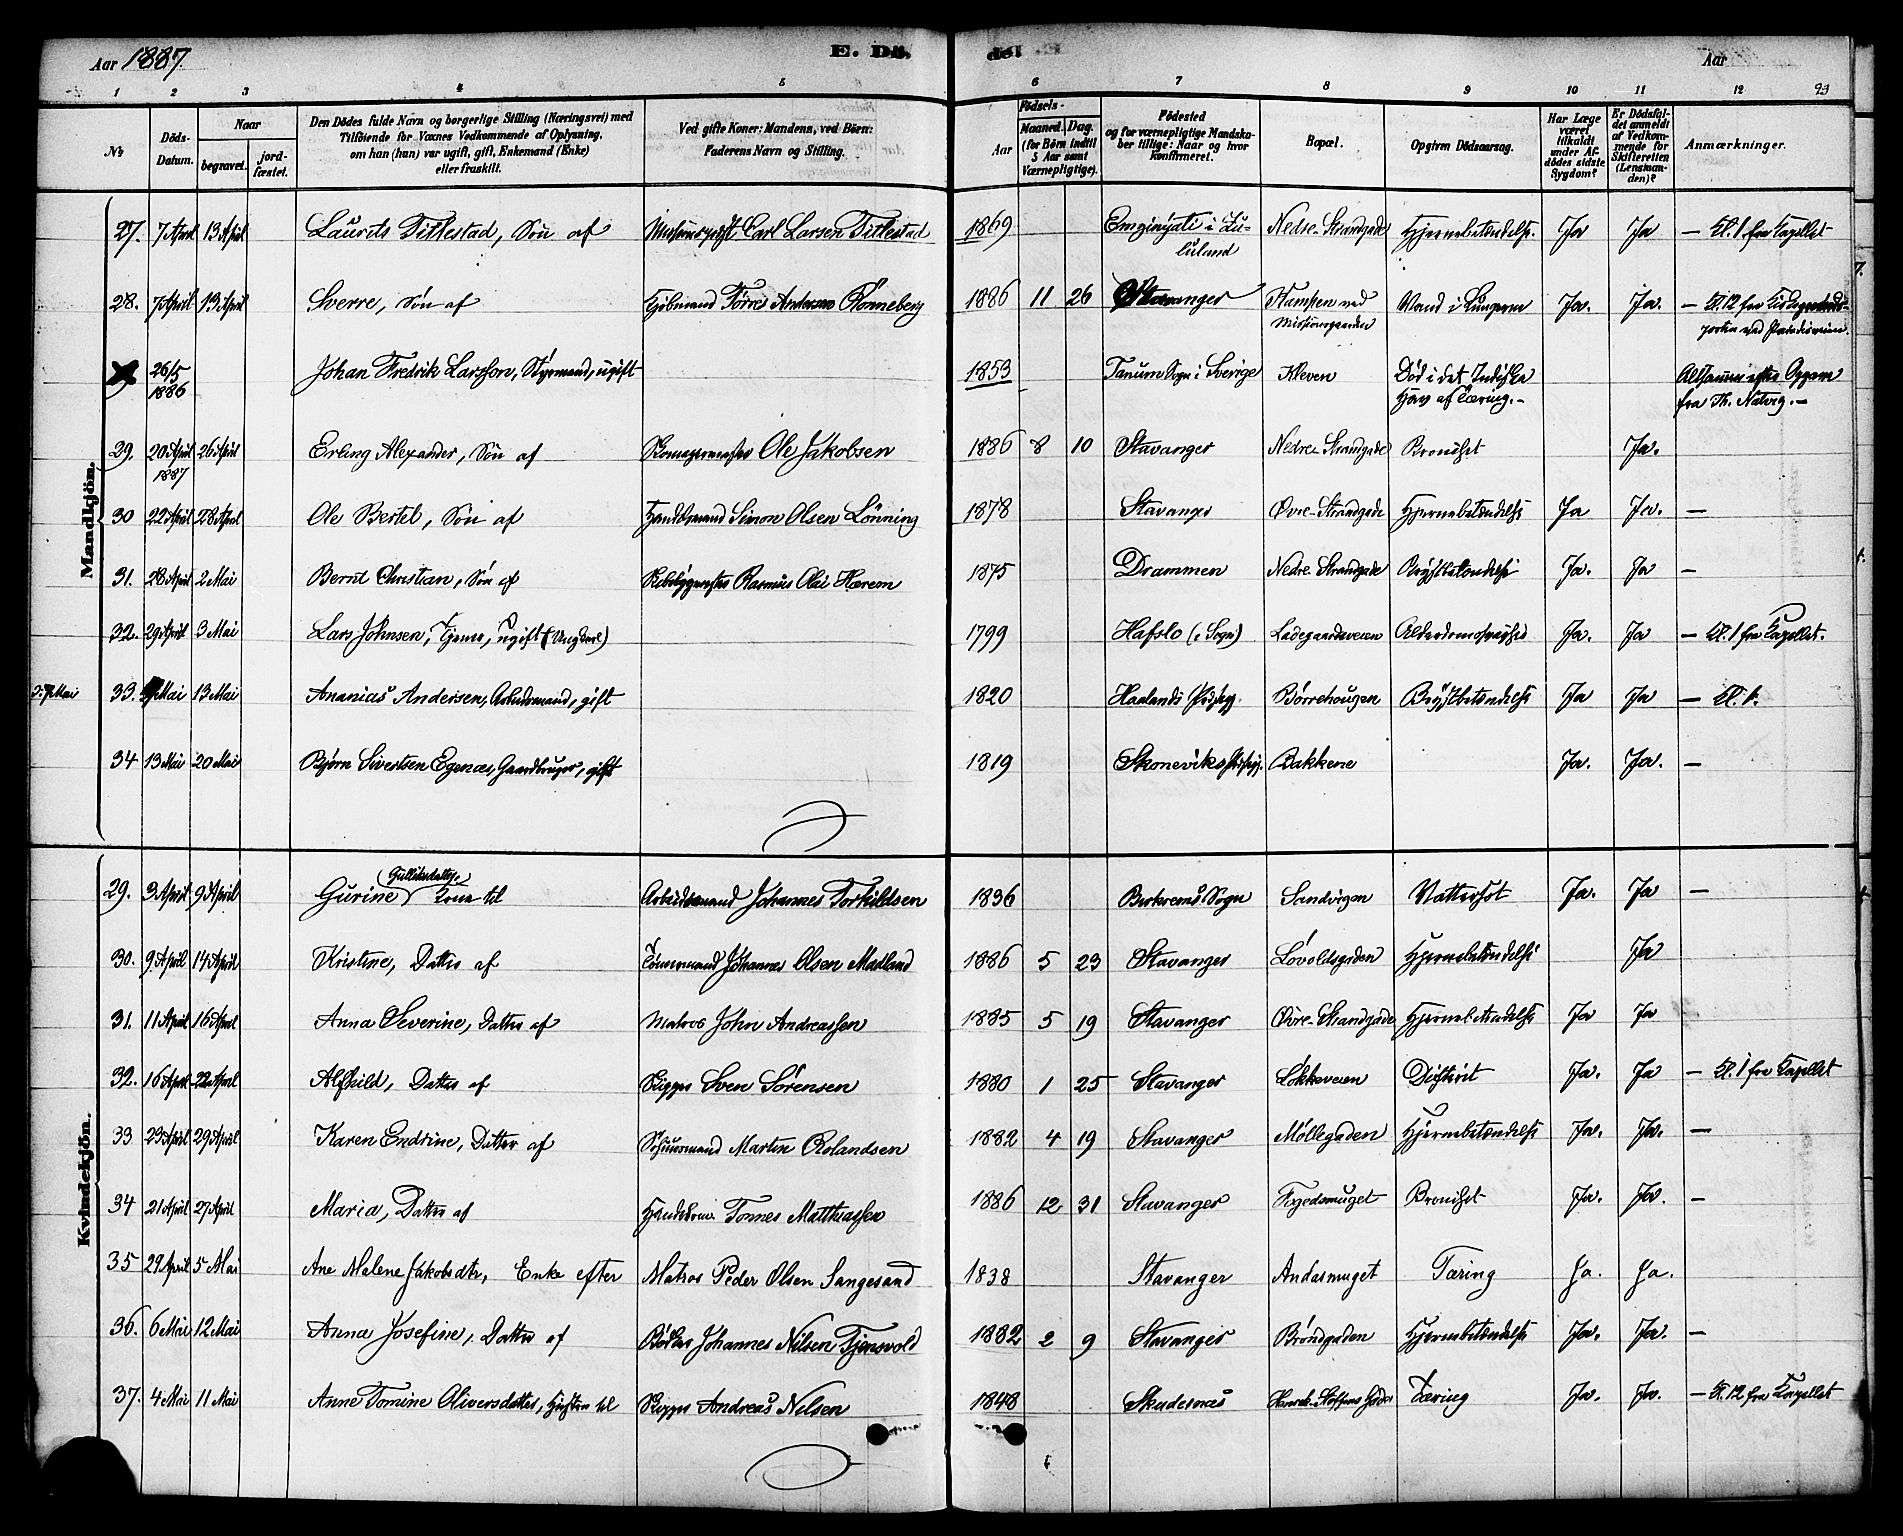 Aar 1887.
E. Dö. de. Aar
93
1 2 3 4 5 6 7 8 9 10 11 12
№ Döds-Datum. Naar begravet. jord-fæstet. Den Dödes fulde Navn og borgerlige Stilling (Næringsvei) med Tilföiende for Voxnes Vedkommende af Oplysning, om han (hun) var ugift, gift, Enkemand (Enke) eller fraskilt. Ved gifte Koner: Mandens, ved Börn: Faderens Navn og Stilling. Födsels- Aar Maaned. Dag. (for Börn indtil 5 Aar samt Værnepligtige). Födested og for værnepligtige Mandskaber tillige: Naar og hvor konfirmeret. Bopæl. Opgiven Dödsaarsag. Har Læge været tilkaldt under Afdödes sidste Sygdom? Er Dödsfaldet anmeldt af Vedkommende for Skifteretten (Lensmanden)? Anmærkninger.
Mandkjön.
27. 7 April 13 April Laurits Titlestad, Sön af Missionspræst Carl Larsen Titlestad 1869 Emginjati i Zululand Nedre-Strandgade Hjernebetændelse. Ja Ja — Kl. 1 fra Kapellet
28. 7 April 13 April Sverre, Sön af Kjöbmand Törres Andersen Rönneberg 1886 11 26 Stavanger Stampen ved Missionsgaarden Vand i Lungerne Ja. Ja. — Kl. 12 fra
26/5 1886 Johan Fredrik Larsson, Styrmand, ugift 1853 Tanum Sogn i Sverige Kleven Död i det Indiske Hav af Tæring. — Altsammen efter Opgave fra Th. Natvig. —
29. 20 April 1887 26 April Erling Alexander, Sön af Skomagermester Ole Jakobsen 1886 8 10 Stavanger Nedre-Strandgade Bronchit Ja.
30 22 April 28 April Ole Bertel, Sön af Handelsmand Simon Olsen Lönning 1878 Stavanger Övre-Strandgade Hjernebetændelse Ja Ja. —
31. 28 April 2 Mai Bernt Christian, Sön af Skibsbyggmester Rasmus Olai Hærem 1875 Drammen Nedre-Strandgade Brystbetændelse Ja. Ja —
32. 29 April 3 Mai Lars Johnsen, Tjener, ugift (Ungkarl) 1799 Hafslo (i Sogn) Ladegaardsveien Alderdomssvaghed Ja. Ja — Kl. 1 fra Kapellet.
33. Mai 13 Mai Ananias Andersen, Arbeidsmand, gift 1820 Haalands Præstegj. Börrehougen Brystbetændelse Ja Ja — Kl. 1.
34 13 Mai 20 Mai Björn Sivertsen Egenæs, Gaardbruger, gift 1819 Skoneviks Præstegj. Bakkene Ja. Ja. —
Kvindekjön.
29. 3 April 9 April Gurine (Gulliksdatter) Kone til Arbeidsmand Johannes Torkildsen 1836 Birkrems Sogn Sandvigen Vattersot Ja. Ja —
30. 9 April 14 April Kristine, Datter af Tömmermand Johannes Olsen Madland 1886 5 23 Stavanger Lövoldsgaden Hjernebetændelse Ja
31. 11 April 16 April Anna Severine, Datter af Matros John Andreassen 1885 5 19 Stavanger Övre-Strandgade Hjernebetændelse Ja Ja
32. 16 April 22 April Alfhild, Datter af Skipper Sven Sörensen 1880 1 25 Stavanger Lökkeveien Difterit Ja. Ja — Kl. 1 fra Kapellet
33 23 April 29 April Karen Endrine, Datter af Skjuusmand Martin Rolandsen 1882 4 19 Stavanger Möllegaden Hjernebetændelse Ja. Ja. —
34 21 April 27 April Maria, Datter af Handelsm. Tonnes Matthiassen 1886 12 31 Stavanger Fogedsmuget Bronchit Ja. Ja. —
35 29 April 5 Mai Ane Malene Jakobsdtr, Enke efter Matros Peder Olsen Sangesand 1838 Stavanger Andasmuget Tæring Ja. Ja.
36. 6 Mai 12 Mai Anna Josefine, Datter af Bödker Johannes Nilsen Tjensvold 1882 2 9 Stavanger Bröndgaden Hjernebetændelse Ja. Ja. —
37. 4 Mai 11 Mai Anne Tomine Oliversdatter, Hustru til Skipper Andreas Nilsen 1848 Skudesnæs Henrik-Steffens Gade Tæring Ja. Ja. — Kl. 12 fra Kapellet